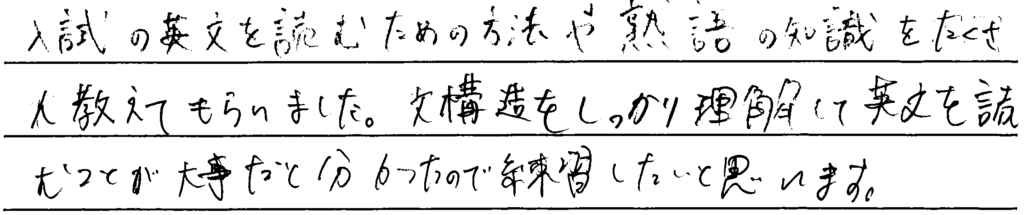 入試の英文を読むための方法や熟語の知識をたくさ
ん教えてもらいました。文構造をしっかり理解して英文を読
むことが大事だと分かったので練習したいと思います。